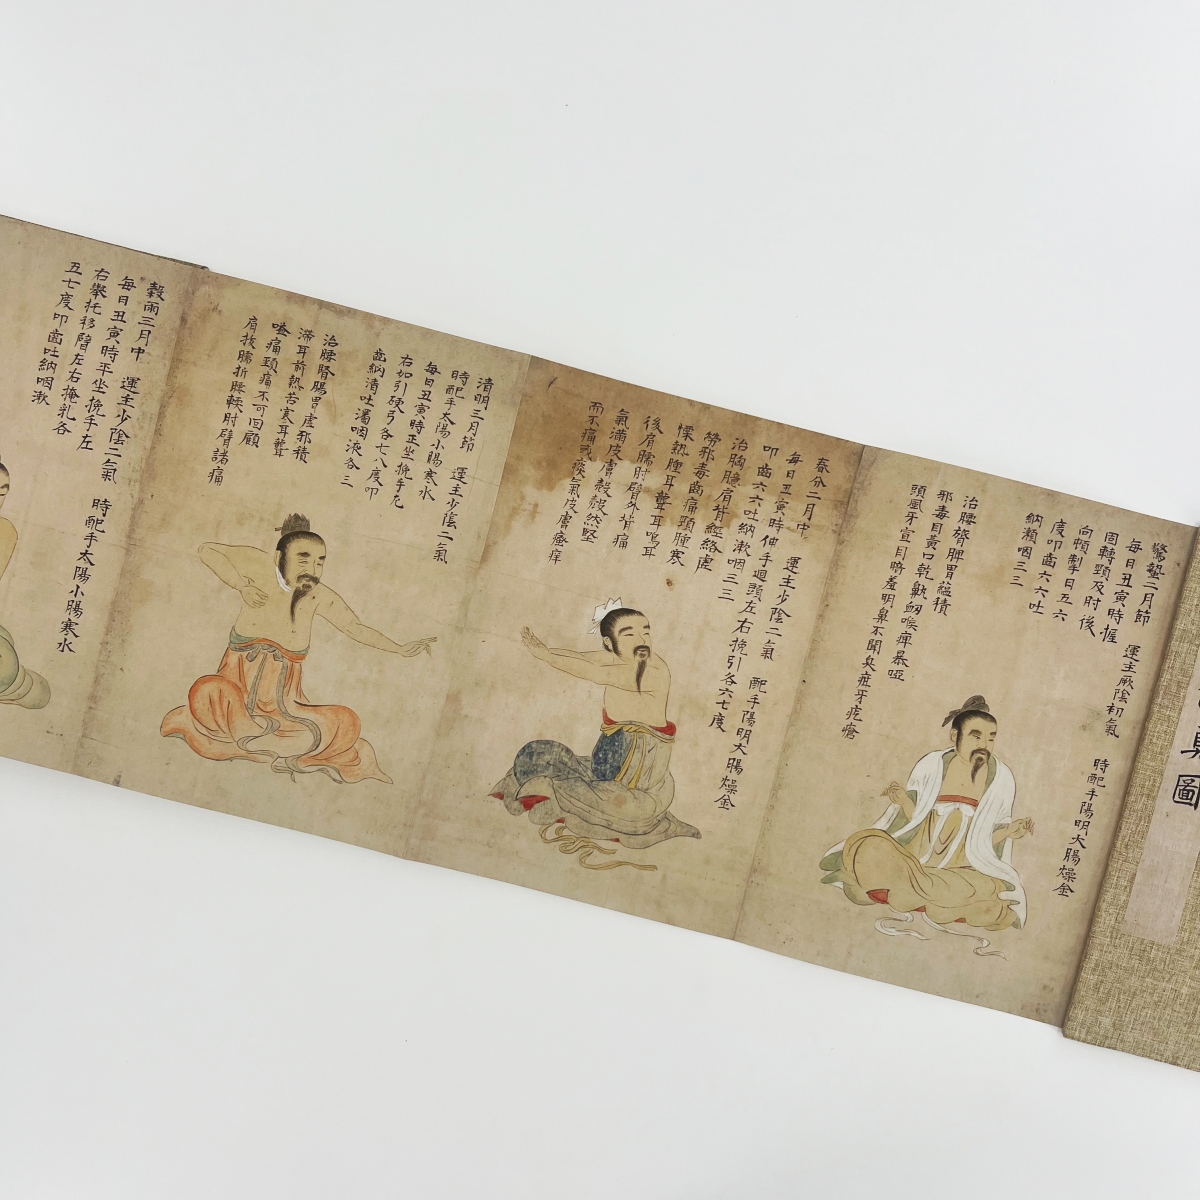 圖
驚蟄二月節　運主厥陰初氣　時配手陽明大腸燥金
每日丑寅時握
固轉頸及肘後
向頓掣日五六
度叩齒六六吐
納漱咽三三
治腰膂脾胃蘊積
邪毒目黃口乾鼽衂喉痺暴啞
頭風牙宣目暗羞明鼻不聞臭疰牙疙瘡
春分二月中　運主少陰二氣　配手陽明大腸燥金
每日丑寅時伸手迴頭左右挽引各六七度
叩齒六六吐納漱咽三三
治胸臆肩背經絡虛
勞邪毒齒痛頸腫寒
慄熱腫耳聾耳鳴耳
後肩臑肘臂外背痛
氣滿皮膚殼殼然堅
而不痛或痰氣皮膚瘙痒
清明三月節　運主少陰二氣
時配手太陽小腸寒水
每日丑寅時正坐挽手左
右如引硬弓各七八度叩
齒納清吐濁咽液各三
治腰腎腸胃虛邪積
滯耳前熱苦寒耳聾
嗌痛頸痛不可回顧
肩拔臑折腰軟肘臂諸痛
穀雨三月中　運主少陰二氣　時配手太陽小腸寒水
每日丑寅時平坐挽手左
右擧托移臂左右掩乳各
五七度叩齒吐納咽漱